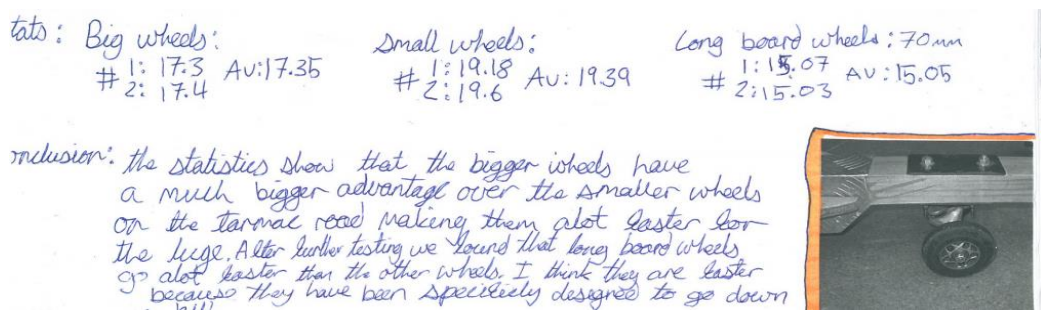 tats: Big wheels: Small wheels: Long board wheels: 70mm
# 1: 17.3 Av: 17.35 # 1: 19.18 Av: 19.39 # 1: 15.07 Av: 15.05
2: 17.4 2: 19.6 2: 15.03
onclusion: the statistics show that the bigger wheels have
a much bigger advantage over the smaller wheels
on the tarmac road making them alot faster for
the luge. After further testing we found that long board wheels
go alot faster than the other wheels. I think they are faster
because they have been specificly designed to go down
hill